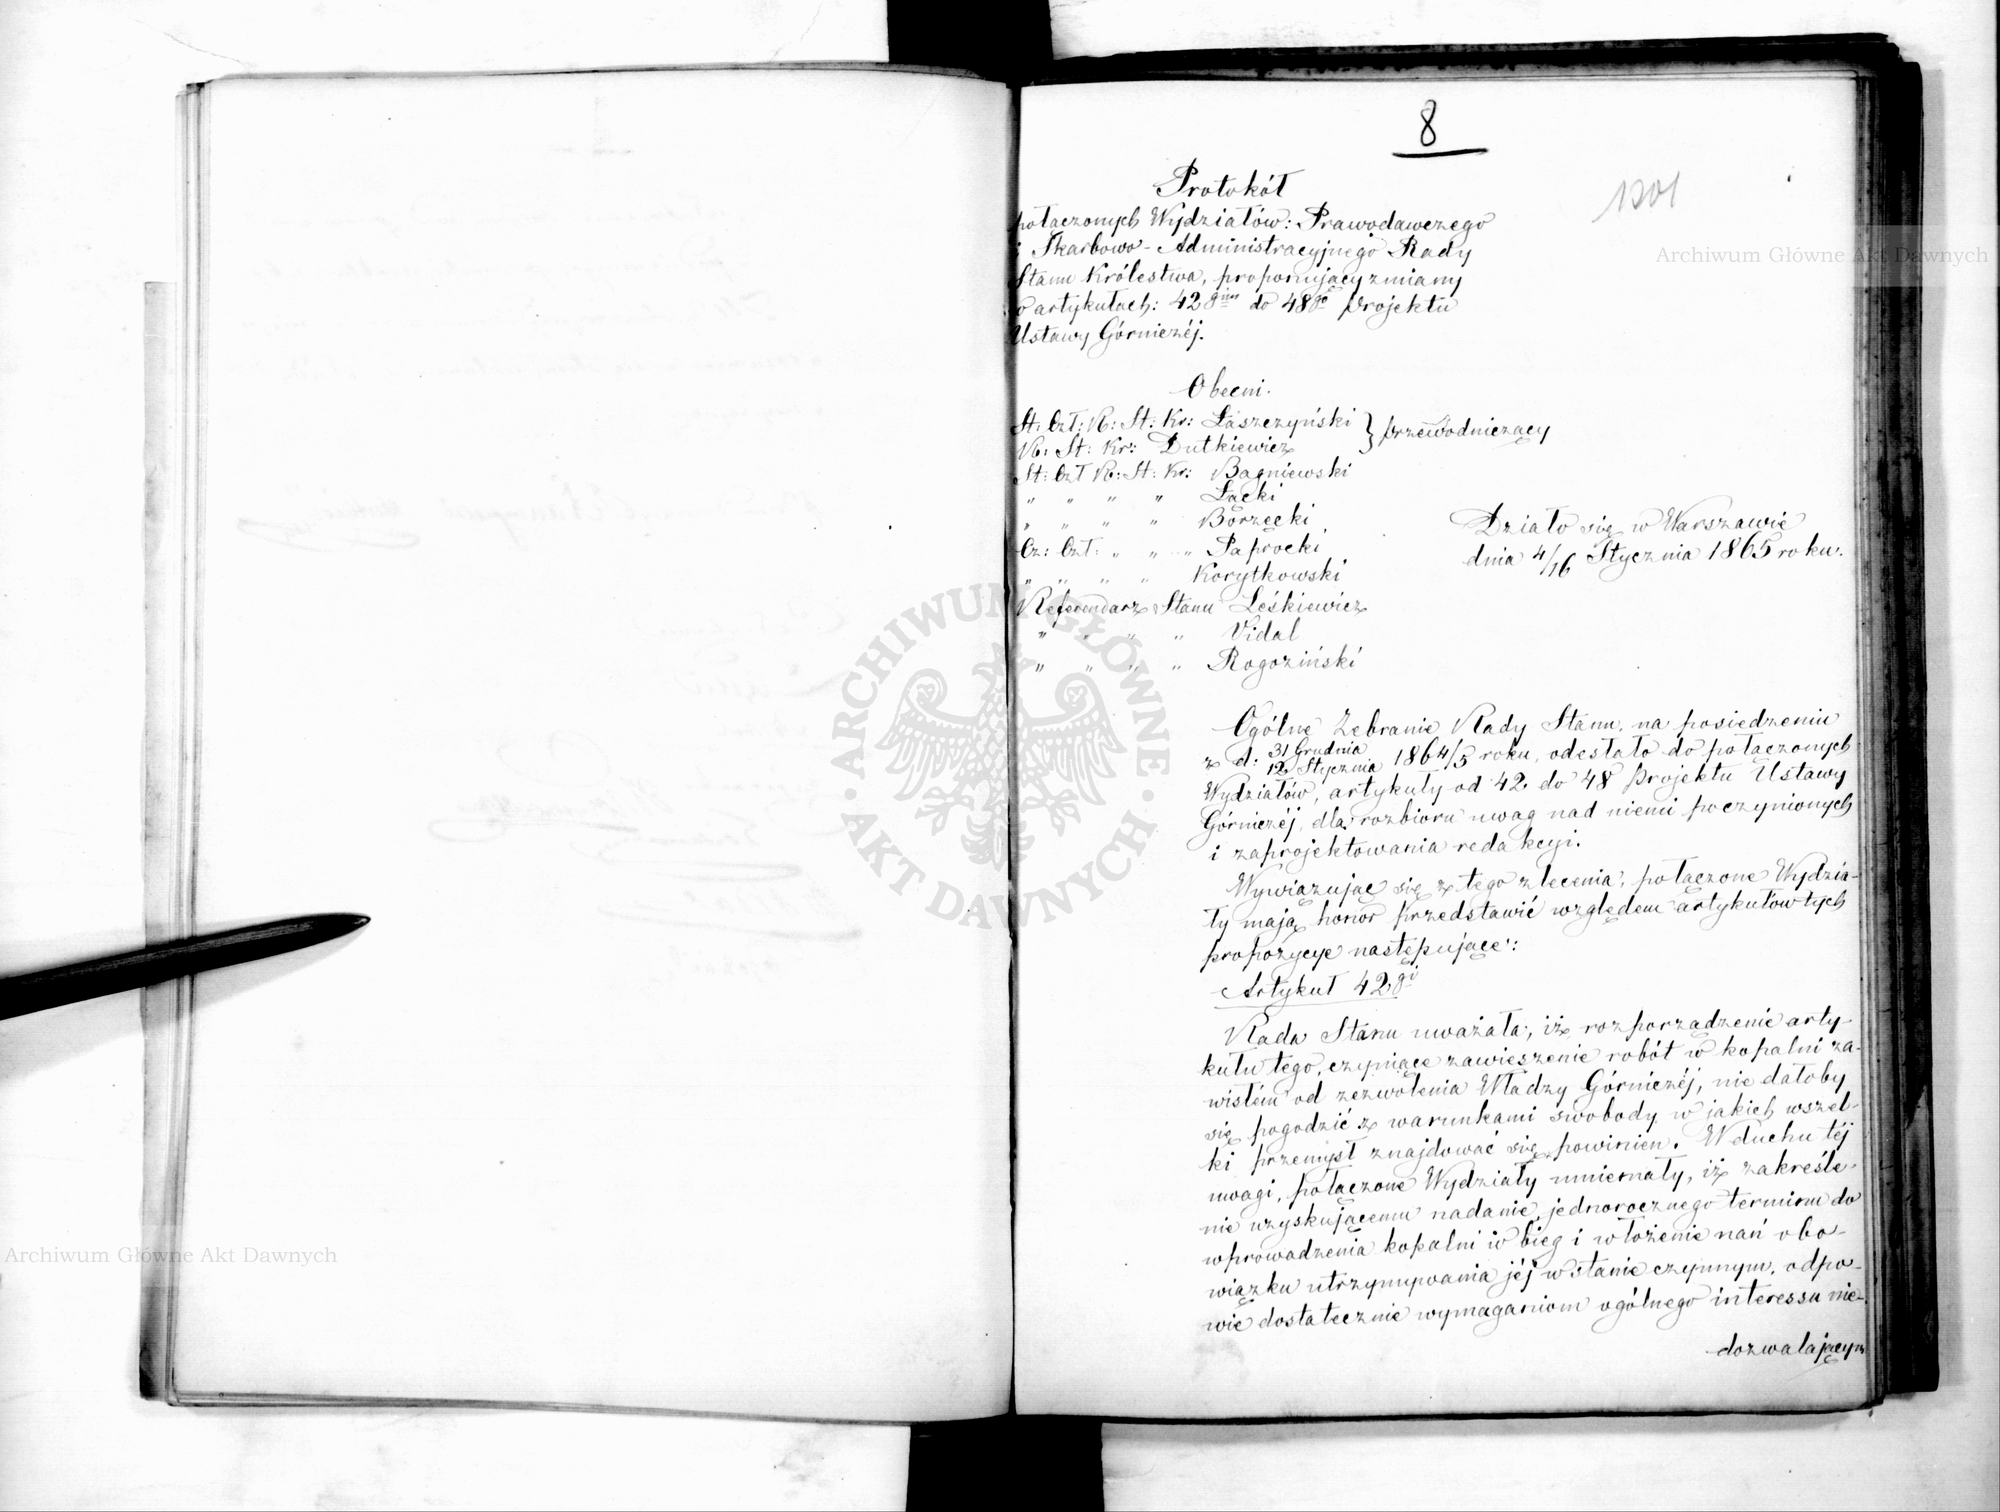 8
1201
Protokół
połączonych Wydziałów: Prawodawczego
i Skarbowo-Administracyjnego Rady
Stanu Królestwa, proponujący zmiany
w artykułach: 42gim do 48go Projektu
Ustawy Górniczéj.
Obecni.
St: Czł: R: St: Kr: Łaszczyński } przewodniczący
R: St: Kr: Dutkiewicz
St: Czł R: St: Kr: Bagniewski
" " " " Łącki
" " " " Borzęcki
Cz: Czł: " " " Paprocki
" " " " Korytkowski
Referendarz Stanu Leśkiewicz
" " " " Vidal
" " " " Rogoziński
Działo się w Warszawie
dnia 4/16 Stycznia 1865 roku.
Ogólne Zebranie Rady Stanu, na posiedzeniu
z d: 31 Grudnia/12 Stycznia 1864/5 roku, odesłało do połączonych
Wydziałów, artykuły od 42 do 48 Projektu Ustawy
Górniczéj, dla rozbioru uwag nad niemi poczynionych
i zaprojektowania redakcyi.
Wywiązując się z tego zlecenia, połączone Wydzia-
ły mają honor przedstawić względem artykułów tych
propozycye następujące:
Artykuł 42gi
Rada Stanu uważała, iż rozporządzenie arty-
kułu tego, czyniące zawieszenie robót w kopalni za-
wisłém od zezwolenia Władzy Górniczéj, nie dałoby
się pogodzić z warunkami swobody, w jakich wszel-
ki przemysł znajdować się powinien. W duchu téj
uwagi, połączone Wydziały mniemały, iż zakreśle-
nie uzyskującemu nadanie, jednorocznego terminu do
wprowadzenia kopalni w bieg i włożenie nań obo-
wiązku utrzymywania jéj w stanie czynnym, odpo-
wie dostatecznie wymaganiom ogólnego interessu nie-
dozwalającym
Archiwum Główne Akt Dawnych
Archiwum Główne Akt Dawnych
ARCHIWUM GŁÓWNE
AKT DAWNYCH